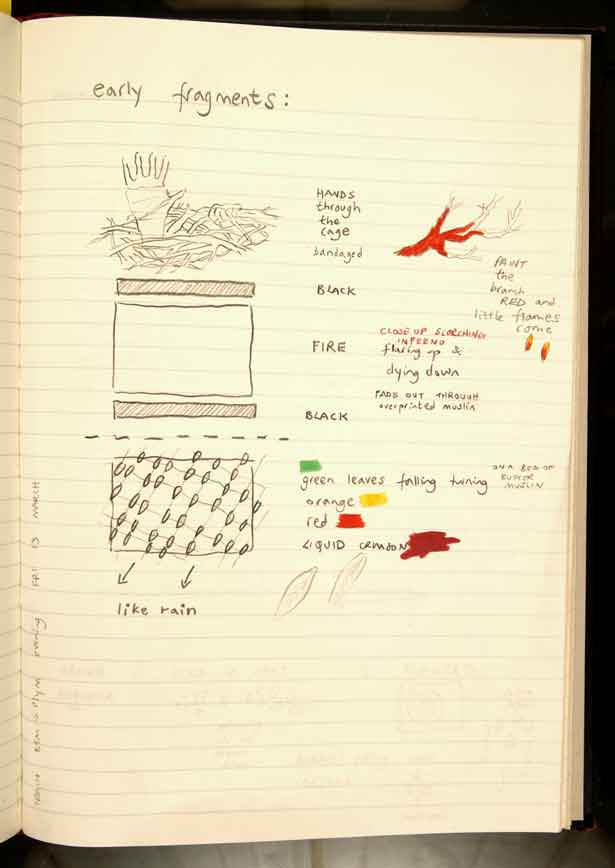 early fragments:
HANDS
through
the
cage
bandaged
PAINT
the
branch
RED and
little flames
come
BLACK
FIRE
CLOSE UP SCORCHING
INFERNO
flaring up &
dying down
FADES OUT THROUGH
overprinted muslin
BLACK
green leaves falling turning
ON A BED OF
BUTTER
MUSLIN
orange
red
LIQUID CRIMSON
like rain
evening FRI 13 MARCH